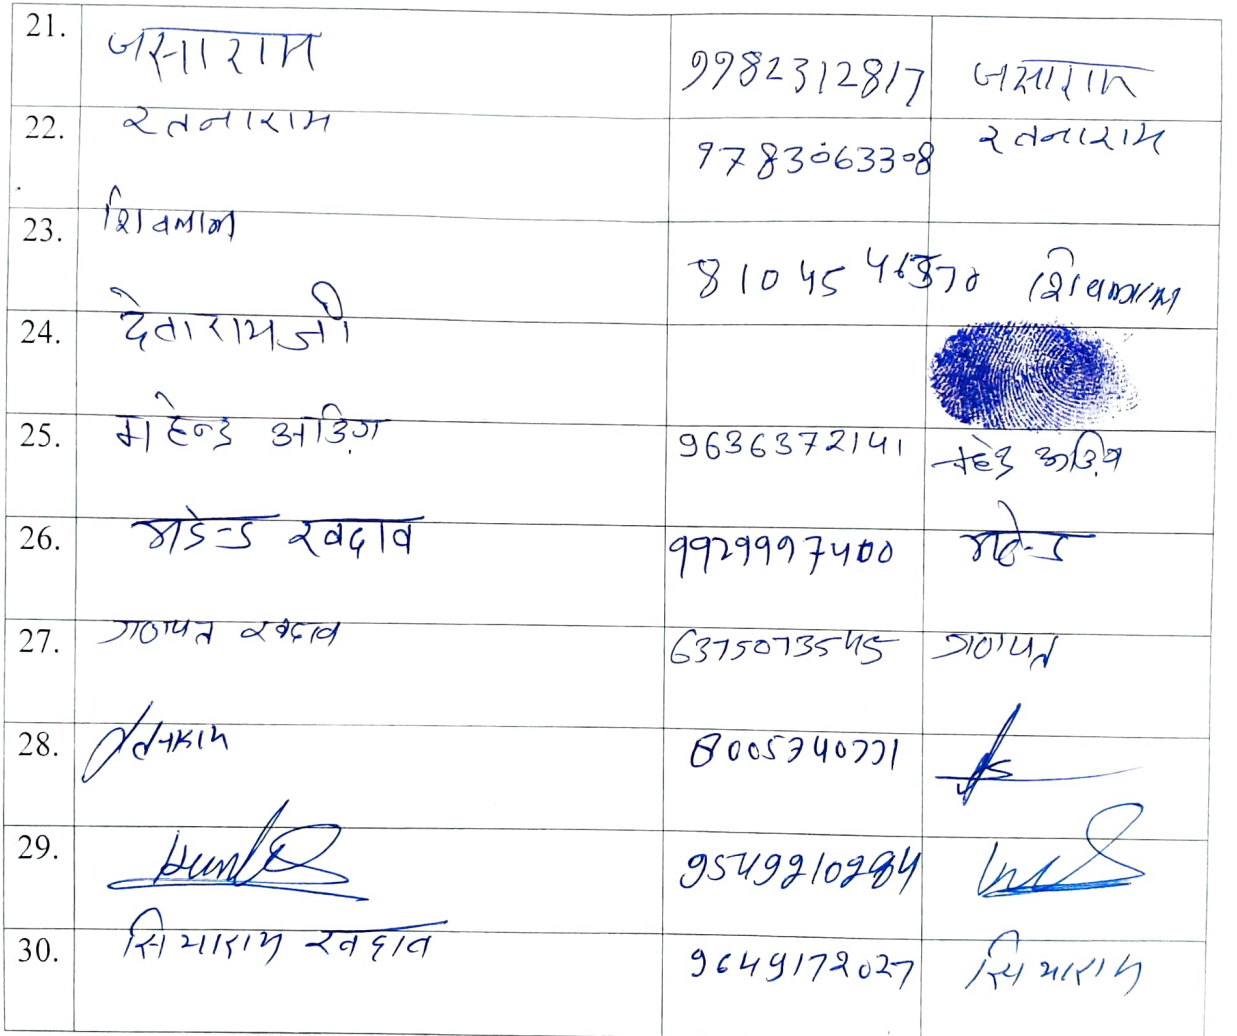 21. जसाराम 9982312817 जसाराम
22. रतनाराम 9783063308 रतनाराम
23. शिवलाल 81045 शिवलाल
24. देतारामजी
25. महेन्द्र अडिग 9636372141 अडिग
26. महेन्द्र खदाव 9929997400 महेन्द्र
27. गणपत खदाव 6375073545 गणपत
28. 8005740771
29. 9549210284
30. सियाराम खदाव 9649172027 सियाराम